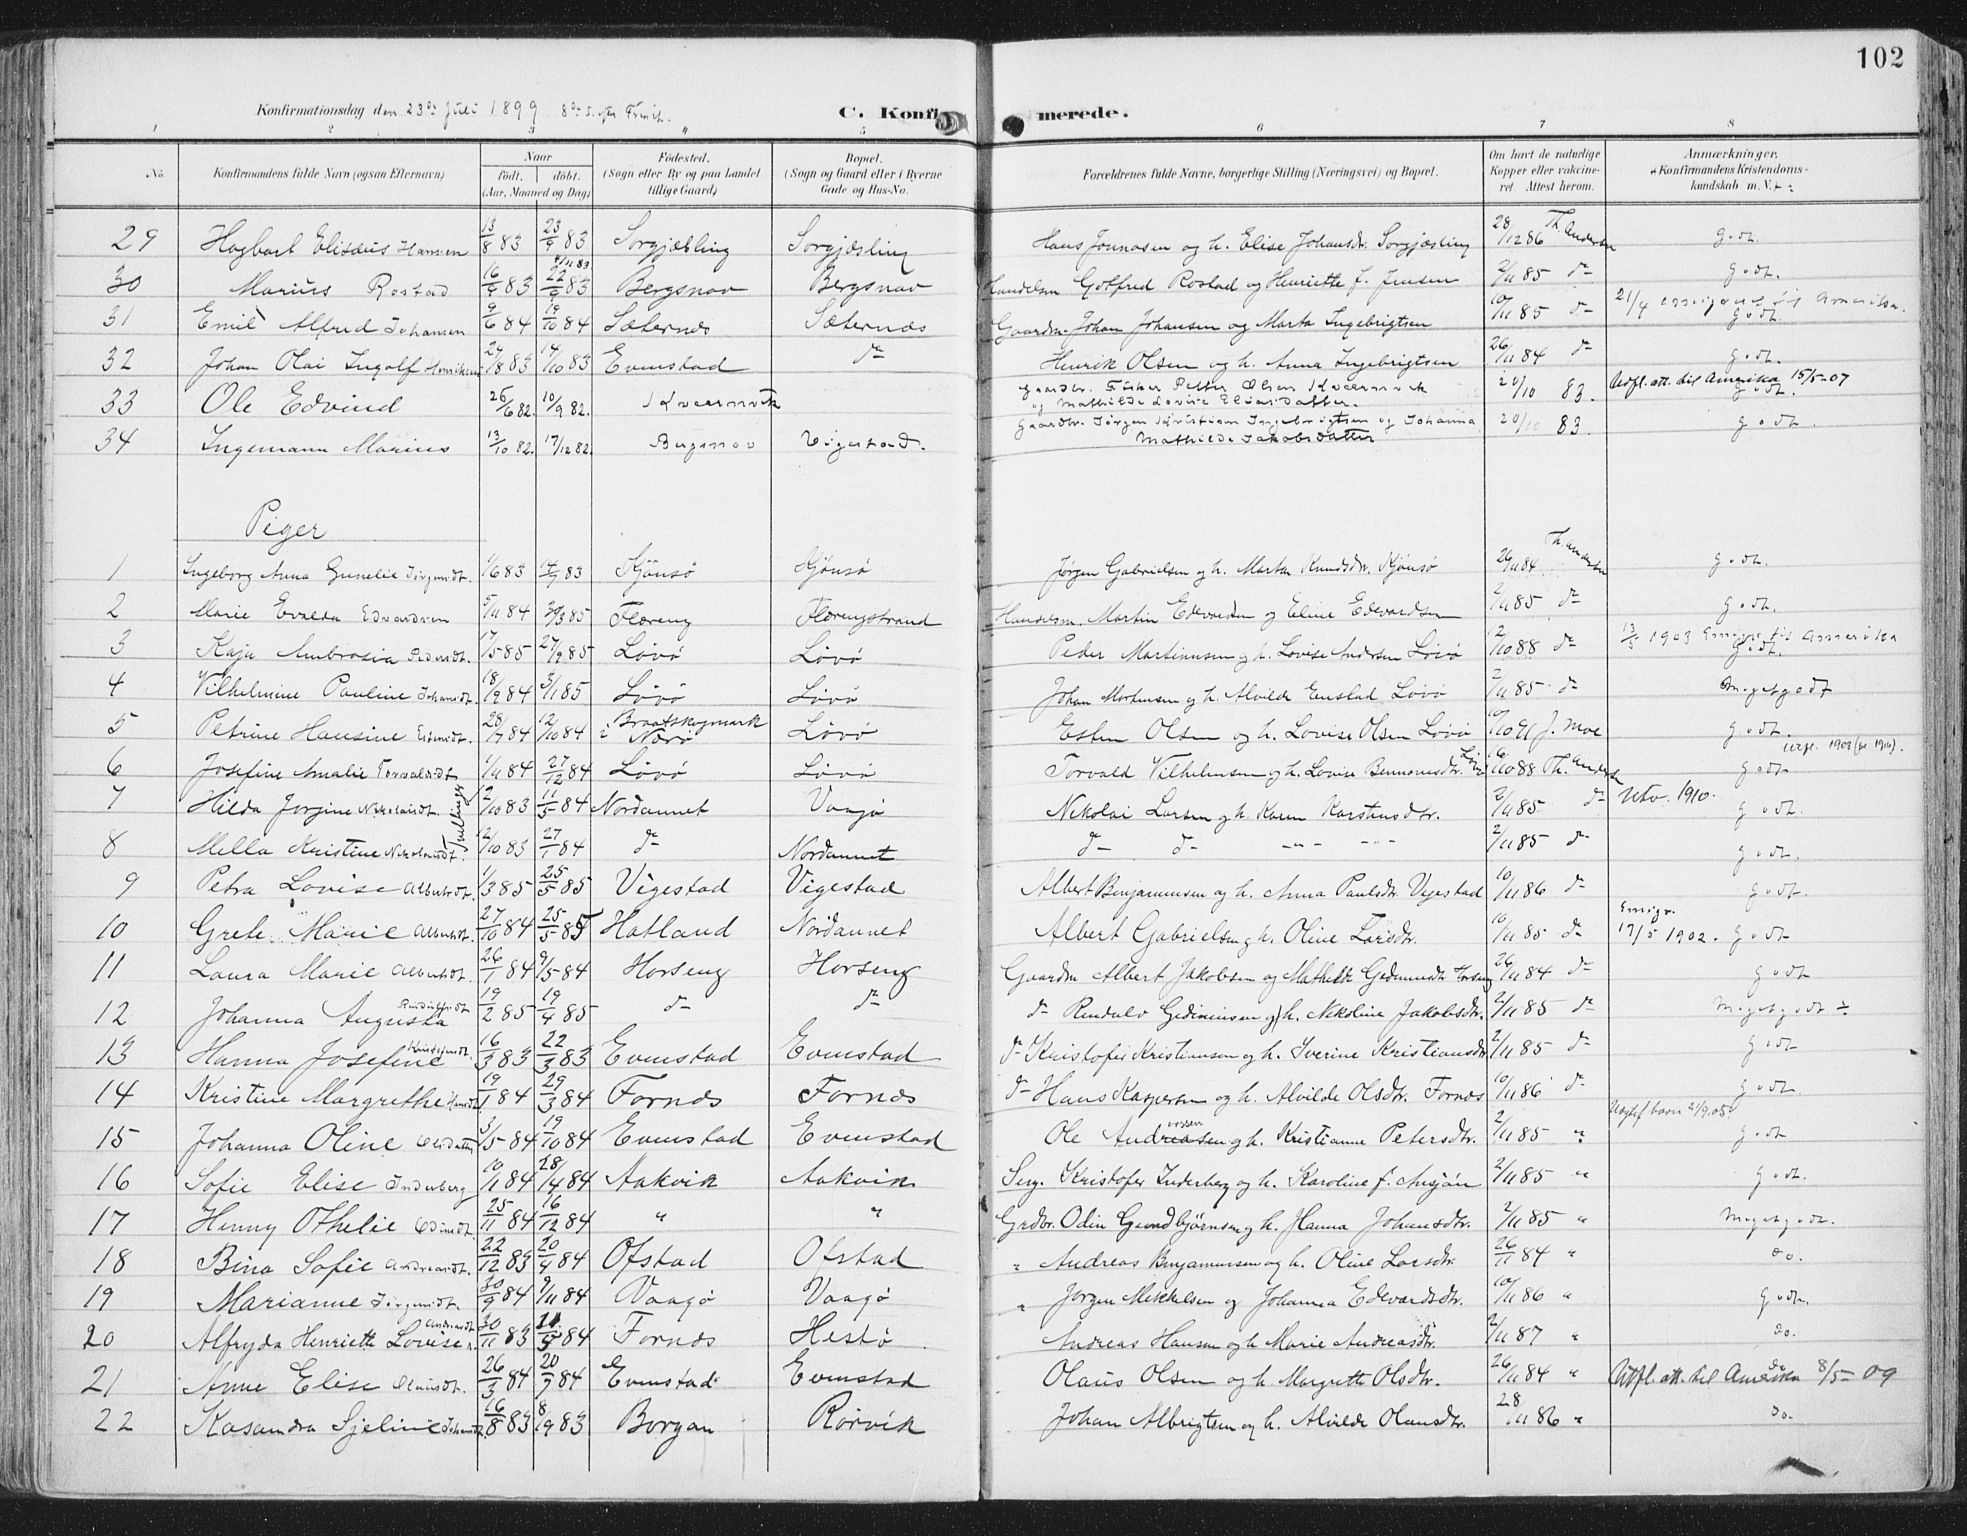 102
Konfirmationsdag den 23de Juli 1899 8de S. efter Trinit.
C. Konfirmerede.
1 2 3 4 5 6 7 8
No. Konfirmandens fulde Navn (ogsaa Efternavn) Naar født. døbt. (Aar, Maaned og Dag) Fødested. (Sogn eller By og paa Landet tillige Gaard) Bopæl. (Sogn og Gaard eller i Byerne Gade og Hus-No. Forældrenes fulde Navne, borgerlige Stilling (Næringsvei) og Bopæl. Om havt de naturlige Kopper eller vakcineret Attest herom. Anmærkninger. Konfirmandens Kristendomskundskab m. V.
29 Hagbart Elisæus Hansen 13/8 83 23/9 83 Sørgjæsling Sørgjæsling Hans Jonnasen og h. Elise Johansdtr. Sørgjæsling 28/12 86 Th. Andersen godt.
30 Marius Rostad 16/4 83 22/9 83 Bergsnov Bergsnov Handelsm Gotfred Rostad og Henriette f. Jensen 2/11 85 do godt.
31 Emil Alfred Johansen 9/6 84 19/10 84 Sæternes Sæternes Gaardbr. Johan Johansen og Marta Ingebrigtsen 10/11 85 do 21/4 emigreret til Amerika. godt.
32 Johan Olai Ingolf Henriksen 24/8 83 14/10 83 Evenstad do Henrik Olsen og h. Anna Ingebrigtsen 26/11 84 do godt.
33 Ole Edvind 26/6 82. 10/9 82. Kvernvik Gaardbr. Fisker Petter Olsen Kvernvik og Mathilde Lovise Eliasdatter. 20/10 83. Udfl. att. til Amerika 15/5-07 godt.
34 Ingemann Marius 13/10 82. 17/12 82. Bergsnov Vigestad. Gaardbr. Jørgen Kristian Ingebrigtsen og Johanna Mathilde Jakobsdatter 20/10 83. godt.
Piger
1 Ingeborg Anna Gunelie Jørgensdt. 1/6 83 14/9 83 Kjønsø Kjønsø Jørgen Gabrielsen og h. Marta Knudsdtr. Kjønsø 26/11 84 Th. Andersen godt.
2 Marie Evalda Edvardsen 5/11 84 30/3 85 Flereng Flerengstrand Handelsm. Martin Edvardsen og Eline Edvardsen 2/11 85 do godt.
3 Kaja Ambrosia Pedersdt. 17/5 85 27/9 85 Løvø Løvø Peder Martinusen og h. Lovise Andersen Løvø 2/10 88 do 13/5 1903 Emigr. til Amerika godt.
4 Vilhelmine Pauline Johansdt. 18/9 84 3/1 85 Løvø Løvø Johan Mortensen og h. Alvilde Enstad Løvø 2/11 85 do Megetgodt
5 Petrine Hansine Estensdt. 28/7 84 12/10 84 Braatskogmark i Nærø Løvø Esten Olsen og h. Lovise Olsen Løvø 10/10 91 J. Moe godt.
6 Josefine Amalie Torvaldsdt 1/11 84 27/12 84 Løvø Løvø Torvald Vilhelmsen og h. Lovise Bennonisdtr. Løvø 6/10 88 Th. Andersen godt
7 Hilda Jørgine Nikolaisdt. Tvillinger 2/10 83 11/5 84 Nordannet Vaagø Nikolai Larsen og h. Karen Karstensdtr. 2/11 85 do Utv. 1910. godt.
8 Mella Kristine Nikolaisdt. 2/10 83 27/1 84 do Nordannet do do 2/11 85 do godt.
9 Petra Lovise Albertsdt. 1/3 85 25/5 85 Vigestad Vigestad Albert Benjaminsen og h. Anna Paulsdtr. Vigestad 10/11 86 do godt.
10 Grete Marie Albertsdt. 27/10 84 25/5 85 Hatland Nordannet Albert Gabrielsen og h. Oline Larsdtr. 10/11 85 do Emigr. 17/5 1902. godt
11 Laura Marie Albertsdt. 26/1 84 9/5 84 Horseng Horseng Gaardm Albert Jakobsen og Mathilde Gediminsdtr Horseng 26/11 84 do godt
12 Johanna Augusta Rindulfsdt 19/2 85 19/4 85 do do do Rindulv Gediminsen og h. Nikoline Jakobsdtr. 2/11 85 do Megetgodt
13 Hanna Josefine Kristofersdt. 16/3 83 22/3 83 Evenstad Evenstad do Kristofer Kristiansen og h. Iverine Kristiansdtr 2/11 85 do godt
14 Kristine Margrethe Hansdt. 19/1 84 29/3 84 Fornes Fornes do Hans Kaspersen og h. Alvilde Olsdtr. Fornes 10/11 86 do godt.
15 Johanna Oline Olsdatter 3/5 84 19/10 84 Evenstad Evenstad Ole Andreasen og h. Kristianne Petersdtr. 2/11 85 " godt
16 Sofie Elise Inderberg 10/11 84 28/14 84 Aakvik Aakvik Serg. Kristofer Inderberg og h. Karoline f. Ansjøn 2/11 85 " godt.
17 Henny Othelie Odinsdt. 25/11 84 16/12 84 " " Grdbr. Odin Gundbjørnsen og h. Hanna Johansdtr. 2/11 85 " Megetgodt.
18 Bina Sofie Andreasdt. 22/12 83 20/4 84 Ofstad Ofstad " Andreas Benjaminsen og h. Oline Larsdtr. 26/11 84 " do.
19 Marianne Jørgensdt. 30/9 84 9/11 84 Vaagø Vaagø " Jørgen Mikkelsen og Johanna Edvardsdtr. 10/11 86 " godt.
20 Alfryda Henriette Lovise Andreasdt. 30/11 83 21/5 84 Fornes Hestø Andreas Hansen og h. Marie Andreasdtr. 2/11 87 " do.
21 Anne Elise Olausdt. 26/3 84 20/7 84 Evenstad Evenstad Olaus Olsen og h. Margrette Olsdtr. 26/11 84 " Utfl. att. til Amerika 8/5-09 do
22 Kasandra Sjeline Johansdt. 16/8 83 8/9 83 Borgan Rørvik Johan Albrigtsen og h. Alvilde Olausdtr. 28/11 86 " do.